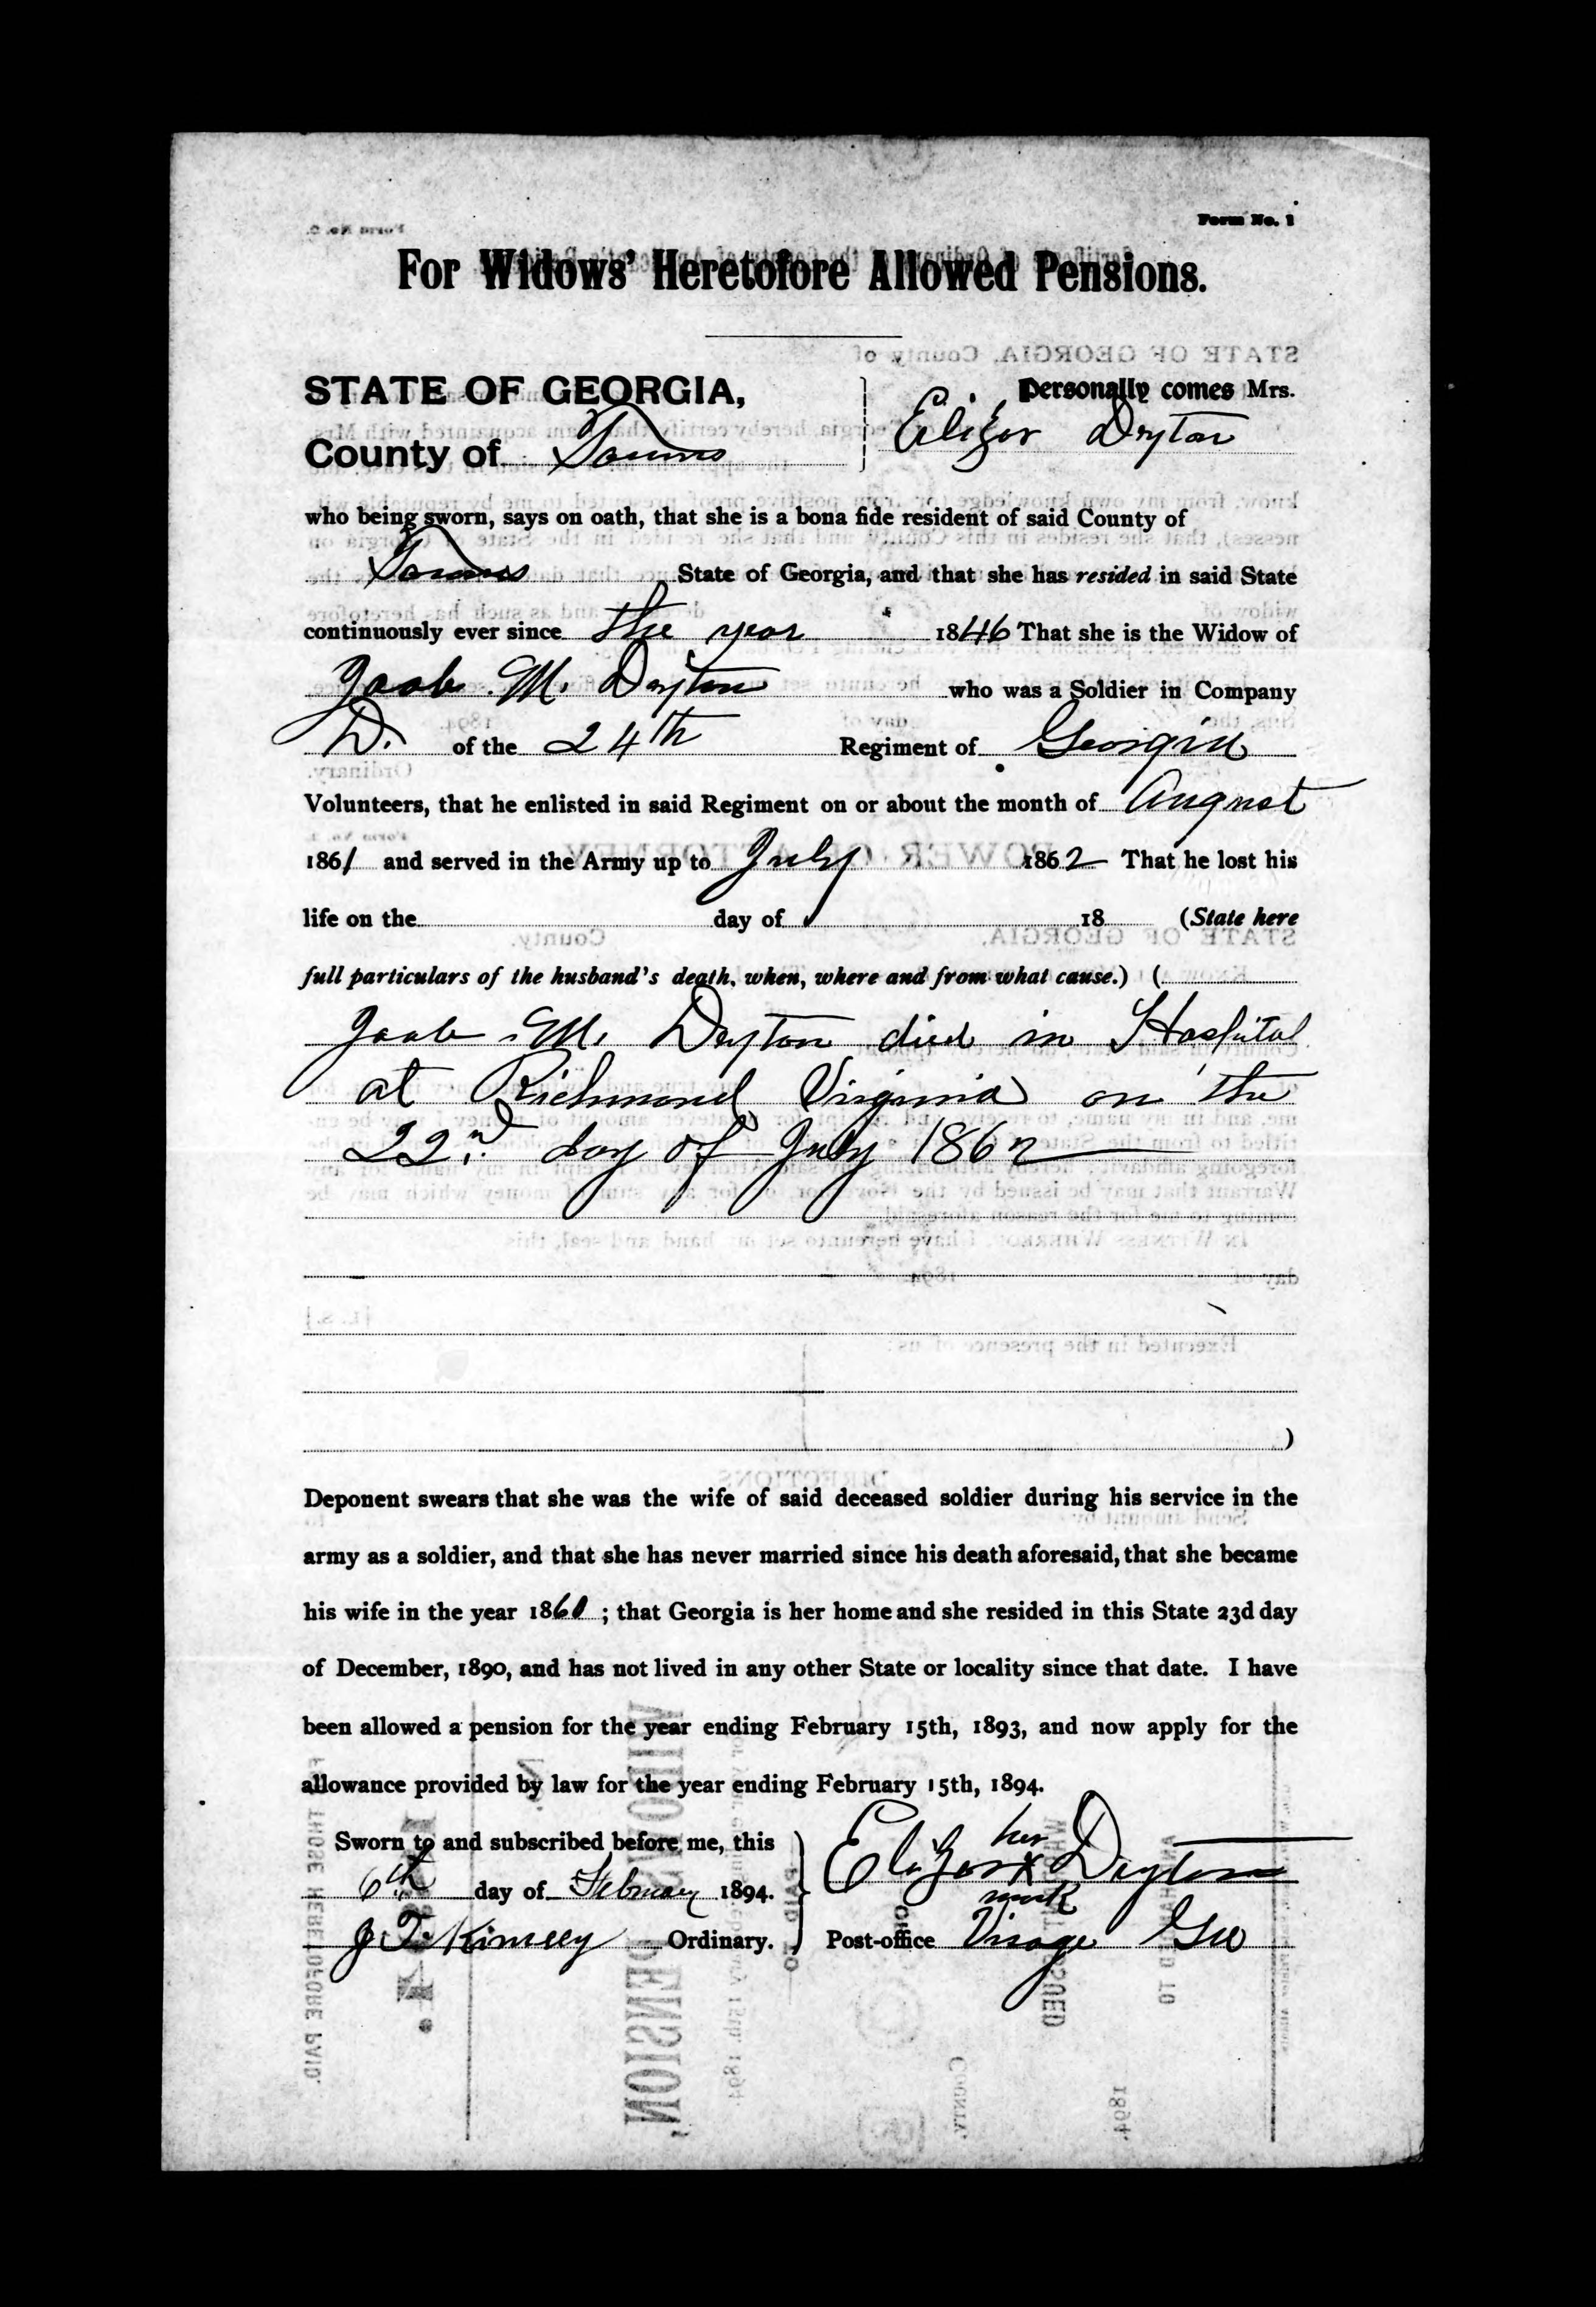 Form No. 1
For Widows' Heretofore Allowed Pensions.
STATE OF GEORGIA,
Personally comes Mrs.
County of Towns
Elizar Dayton
who being sworn, says on oath, that she is a bona fide resident of said County of
Towns State of Georgia, and that she has resided in said State
continuously ever since the year 1846 That she is the Widow of
Joab M. Dayton who was a Soldier in Company
D. of the 24th Regiment of Georgia
Volunteers, that he enlisted in said Regiment on or about the month of August
1861 and served in the Army up to July 1862 That he lost his
life on the day of 18 (State here
full particulars of the husband's death, when, where and from what cause.) (
Joab M. Dayton died in Hospital
at Richmond Virginia on the
22nd day of July 1862
)
Deponent swears that she was the wife of said deceased soldier during his service in the
army as a soldier, and that she has never married since his death aforesaid, that she became
his wife in the year 1860 ; that Georgia is her home and she resided in this State 23d day
of December, 1890, and has not lived in any other State or locality since that date. I have
been allowed a pension for the year ending February 15th, 1893, and now apply for the
allowance provided by law for the year ending February 15th, 1894.
Sworn to and subscribed before me, this
her
Elizar x Dayton
mark
6th day of February 1894.
J. T. Kimsey Ordinary.
Post-office Visage Geo